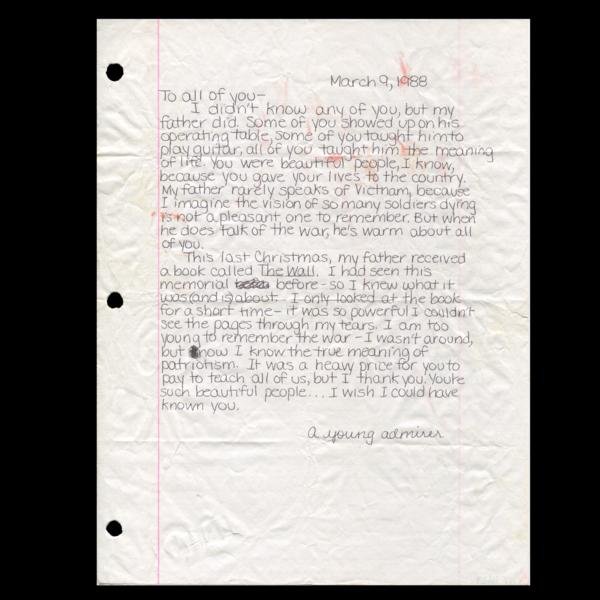 March 9, 1988
To all of you-
I didn't know any of you, but my
father did. Some of you showed up on his
operating table, some of you taught him to
play guitar, all of you taught him the meaning
of life. You were beautiful people, I know,
because you gave your lives to the country.
My father rarely speaks of Vietnam, because
I imagine the vision of so many soldiers dying
is not a pleasant one to remember. But when
he does talk of the war, he's warm about all
of you.
This last Christmas, my father received
a book called The Wall. I had seen this
memorial before - so I knew what it
was (and is) about. I only looked at the book
for a short time - it was so powerful I couldn't
see the pages through my tears. I am too
young to remember the war - I wasn't around,
but now I know the true meaning of
patriotism. It was a heavy price for you to
pay to teach all of us, but I thank you. You're
such beautiful people... I wish I could have
known you.
a young admirer